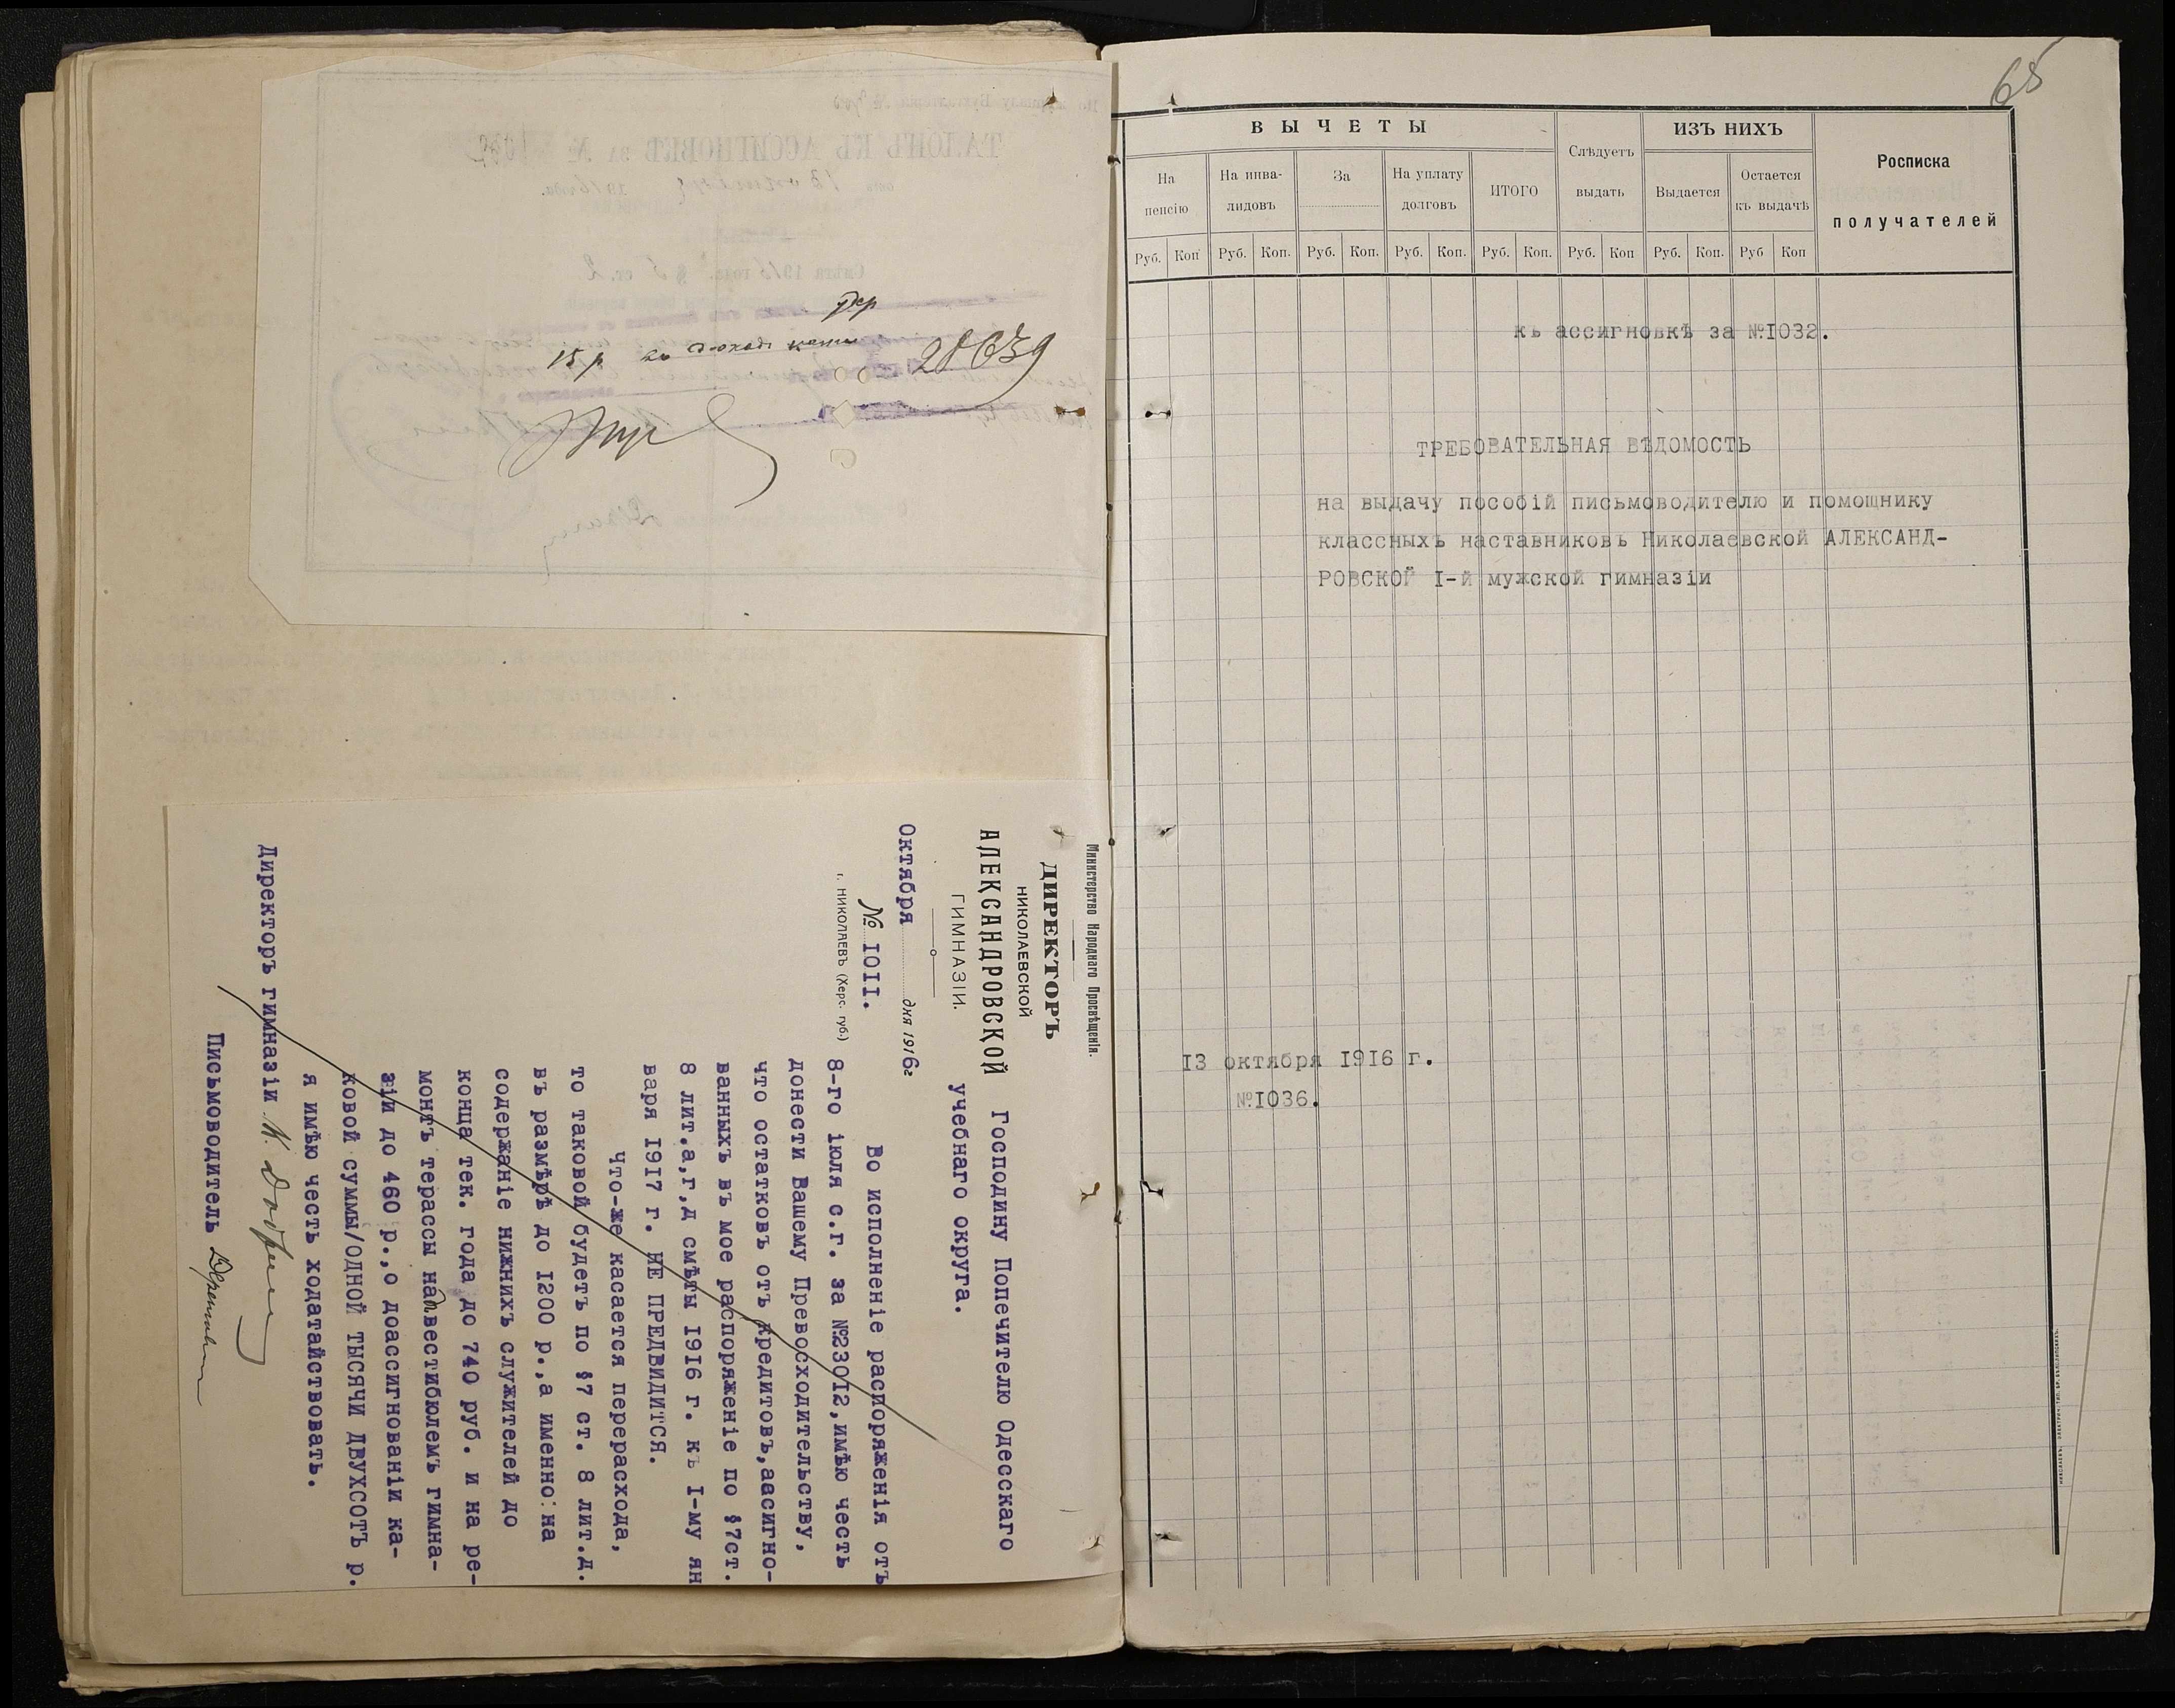 15 р
28639
Министерство Народнаго Просвѣщенія.
ДИРЕКТОРЪ
НИКОЛАЕВСКОЙ
АЛЕКСАНДРОВСКОЙ
ГИМНАЗІИ.
Октября дня 1916г
№ IOII.
г. НИКОЛАЕВЪ (Херс. губ.)
Господину Попечителю Одесскаго
учебнаго округа.
Во исполненіе распоряженія отъ
8-го іюля с.г. за №23OI2,имѣю честь
донести Вашему Превосходительству,
что остатковъ отъ кредитовъ,аасигно-
ванныхъ въ мое распоряженіе по §7ст.
8 лит.а,г,д смѣты I9I6 г. къ I-му ян
варя I9I7 г. НЕ ПРЕДВИДИТСЯ.
Что-же касается перерасхода,
то таковой будетъ по §7 ст. 8 лит.д.
въ размѣрѣ до I200 р.,а именно:на
содержаніе нижнихъ служителей до
конца тек. года до 740 руб. и на ре-
монтъ терассы надвестибюлемъ гимна-
зіи до 460 р.,о доассигнованіи ка-
ковой суммы/ОДНОЙ ТЫСЯЧИ ДВУХСОТЪ р.
я имѣю честь ходатайствовать.
Директоръ гимназіи
Письмоводитель
65
ВЫЧЕТЫ
Слѣдуетъ
выдать
ИЗЪ НИХЪ
Росписка
получателей
На
пенсію
На инва-
лидовъ
За
На уплату
долговъ
ИТОГО
Выдается
Остается
къ выдачѣ
Руб. Коп Руб. Коп. Руб. Коп. Руб. Коп. Руб. Коп. Руб. Коп Руб. Коп. Руб Коп
къ ассигновкѣ за №I032.
ТРЕБОВАТЕЛЬНАЯ ВѢДОМОСТЬ
на выдачу пособій письмоводителю и помощнику
классныхъ наставниковъ Николаевской АЛЕКСАНД-
РОВСКОЙ I-й мужской гимназіи
I3 октября I9I6 г.
№I036.